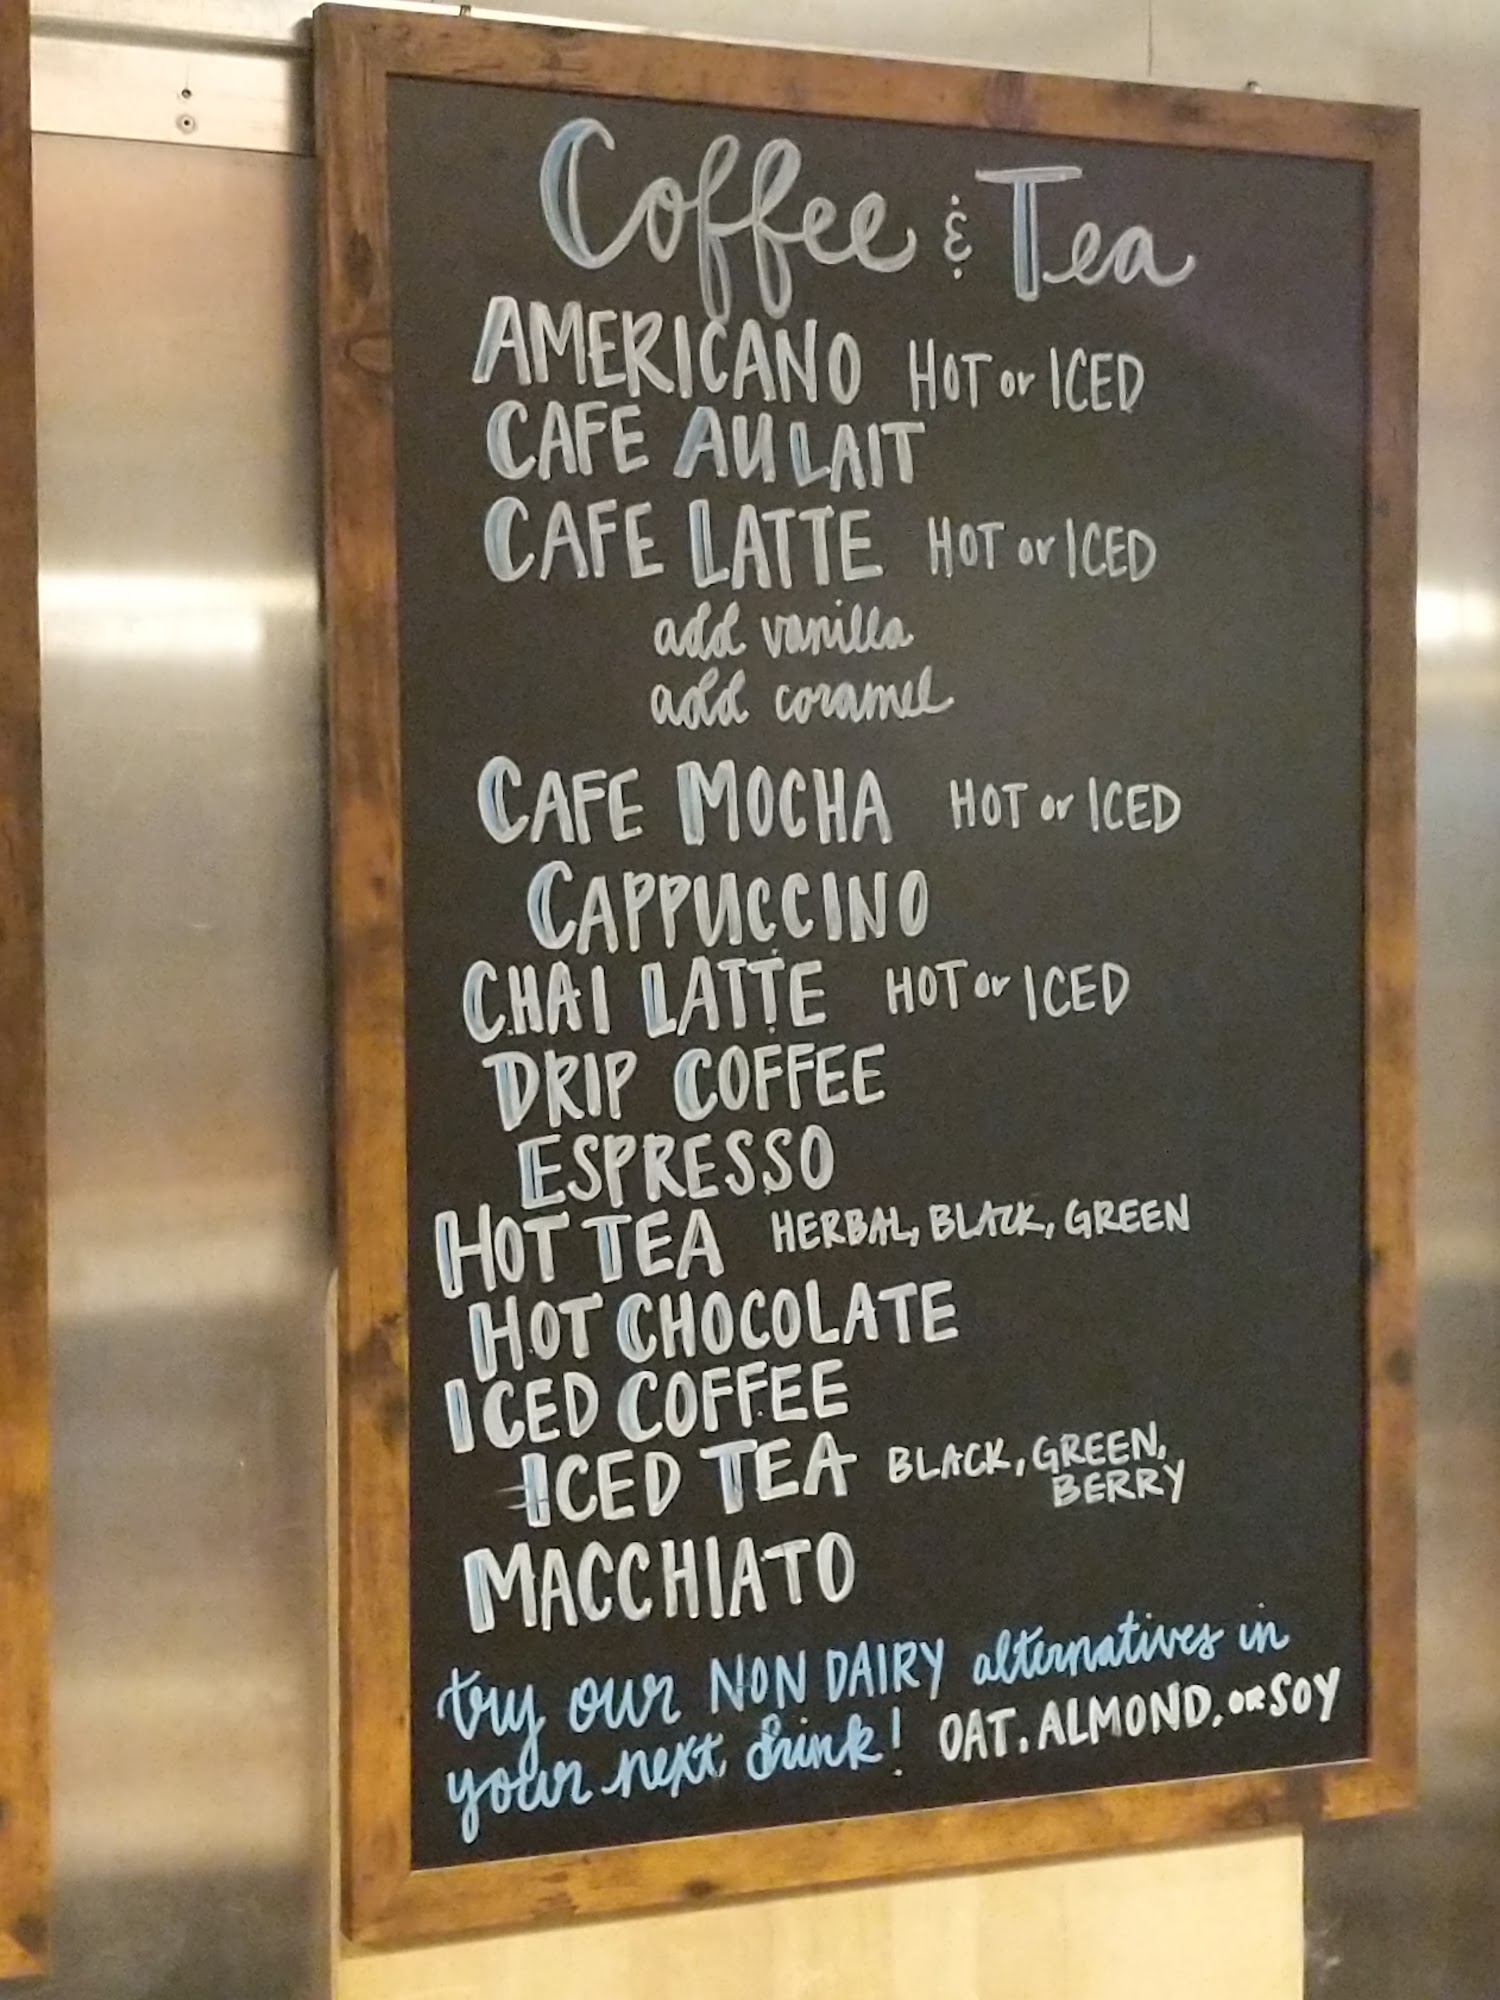 Coffee & Tea
AMERICANO HOT or ICED
CAFE AU LAIT
CAFE LATTE HOT or ICED
add vanilla
add caramel
CAFE MOCHA HOT or ICED
CAPPUCCINO
CHAI LATTE HOT or ICED
DRIP COFFEE
ESPRESSO
HOT TEA HERBAL, BLACK, GREEN
HOT CHOCOLATE
ICED COFFEE
ICED TEA BLACK, GREEN,
BERRY
MACCHIATO
try our NON DAIRY alternatives in
your next drink! OAT, ALMOND, OR SOY